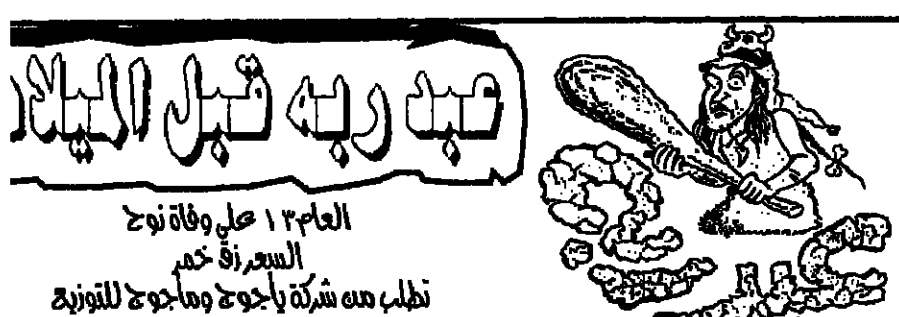 عبد ربه قبل الميلاد
العام ١٣ على وفاة نوح
السعر زق خمر
تطلب من شركة يأجوج ومأجوج للتوزيع